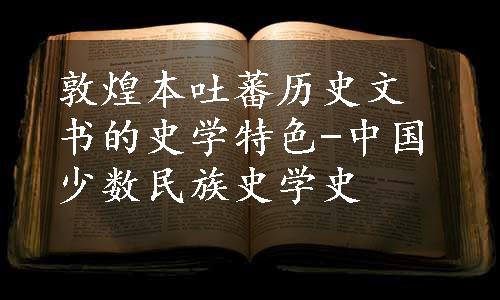 敦煌本吐蕃历史文
书的史学特色-中国
少数民族史学史